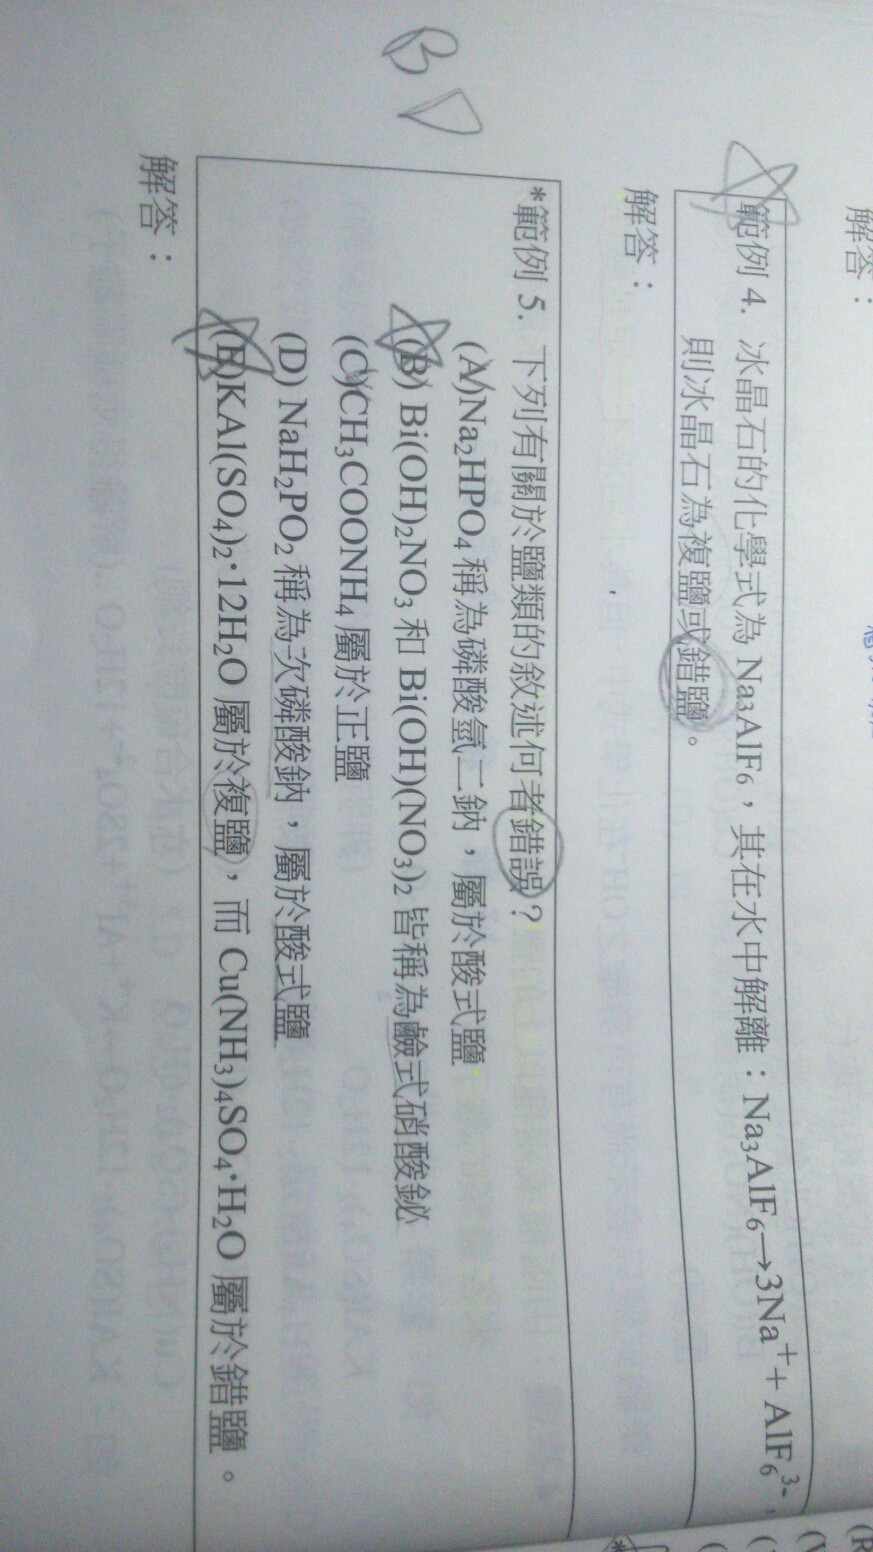 解答：
範例 4. 冰晶石的化學式為 Na₃AlF₆，其在水中解離：Na₃AlF₆→3Na⁺+ AlF₆³⁻，
則冰晶石為複鹽或錯鹽。
解答：
*範例 5. 下列有關於鹽類的敘述何者錯誤？
(A)Na₂HPO₄ 稱為磷酸氫二鈉，屬於酸式鹽。
(B) Bi(OH)₂NO₃ 和 Bi(OH)(NO₃)₂ 皆稱為鹼式硝酸鉍
(C)CH₃COONH₄ 屬於正鹽
(D) NaH₂PO₂ 稱為次磷酸鈉，屬於酸式鹽
(E)KAl(SO₄)₂·12H₂O 屬於複鹽，而 Cu(NH₃)₄SO₄·H₂O 屬於錯鹽。
解答：
B D